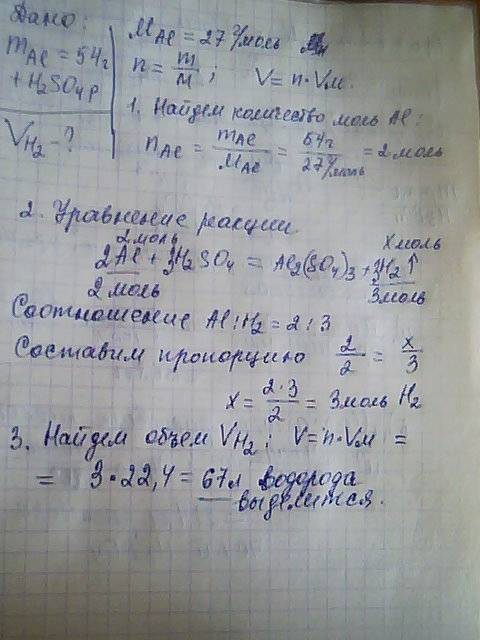 Дано:
m Al = 54г
+ H2SO4 р
VH2 - ?
M Al = 27 г/моль
n = m/M ; V = n · Vм.
1. Найдем количество моль Al:
n Al = m Al / M Al = 54г / 27 г/моль = 2 моль
2. Уравнение реакции
2 моль х моль
2Al + 3H2SO4 = Al2(SO4)3 + 3H2 ↑
2 моль 3 моль
Соотношение Al : H2 = 2 : 3
Составим пропорцию 2/2 = х/3
х = 2·3/2 = 3 моль H2
3. Найдем объем VH2 ; V = n · Vм =
= 3 · 22,4 = 67л водорода
выделится.